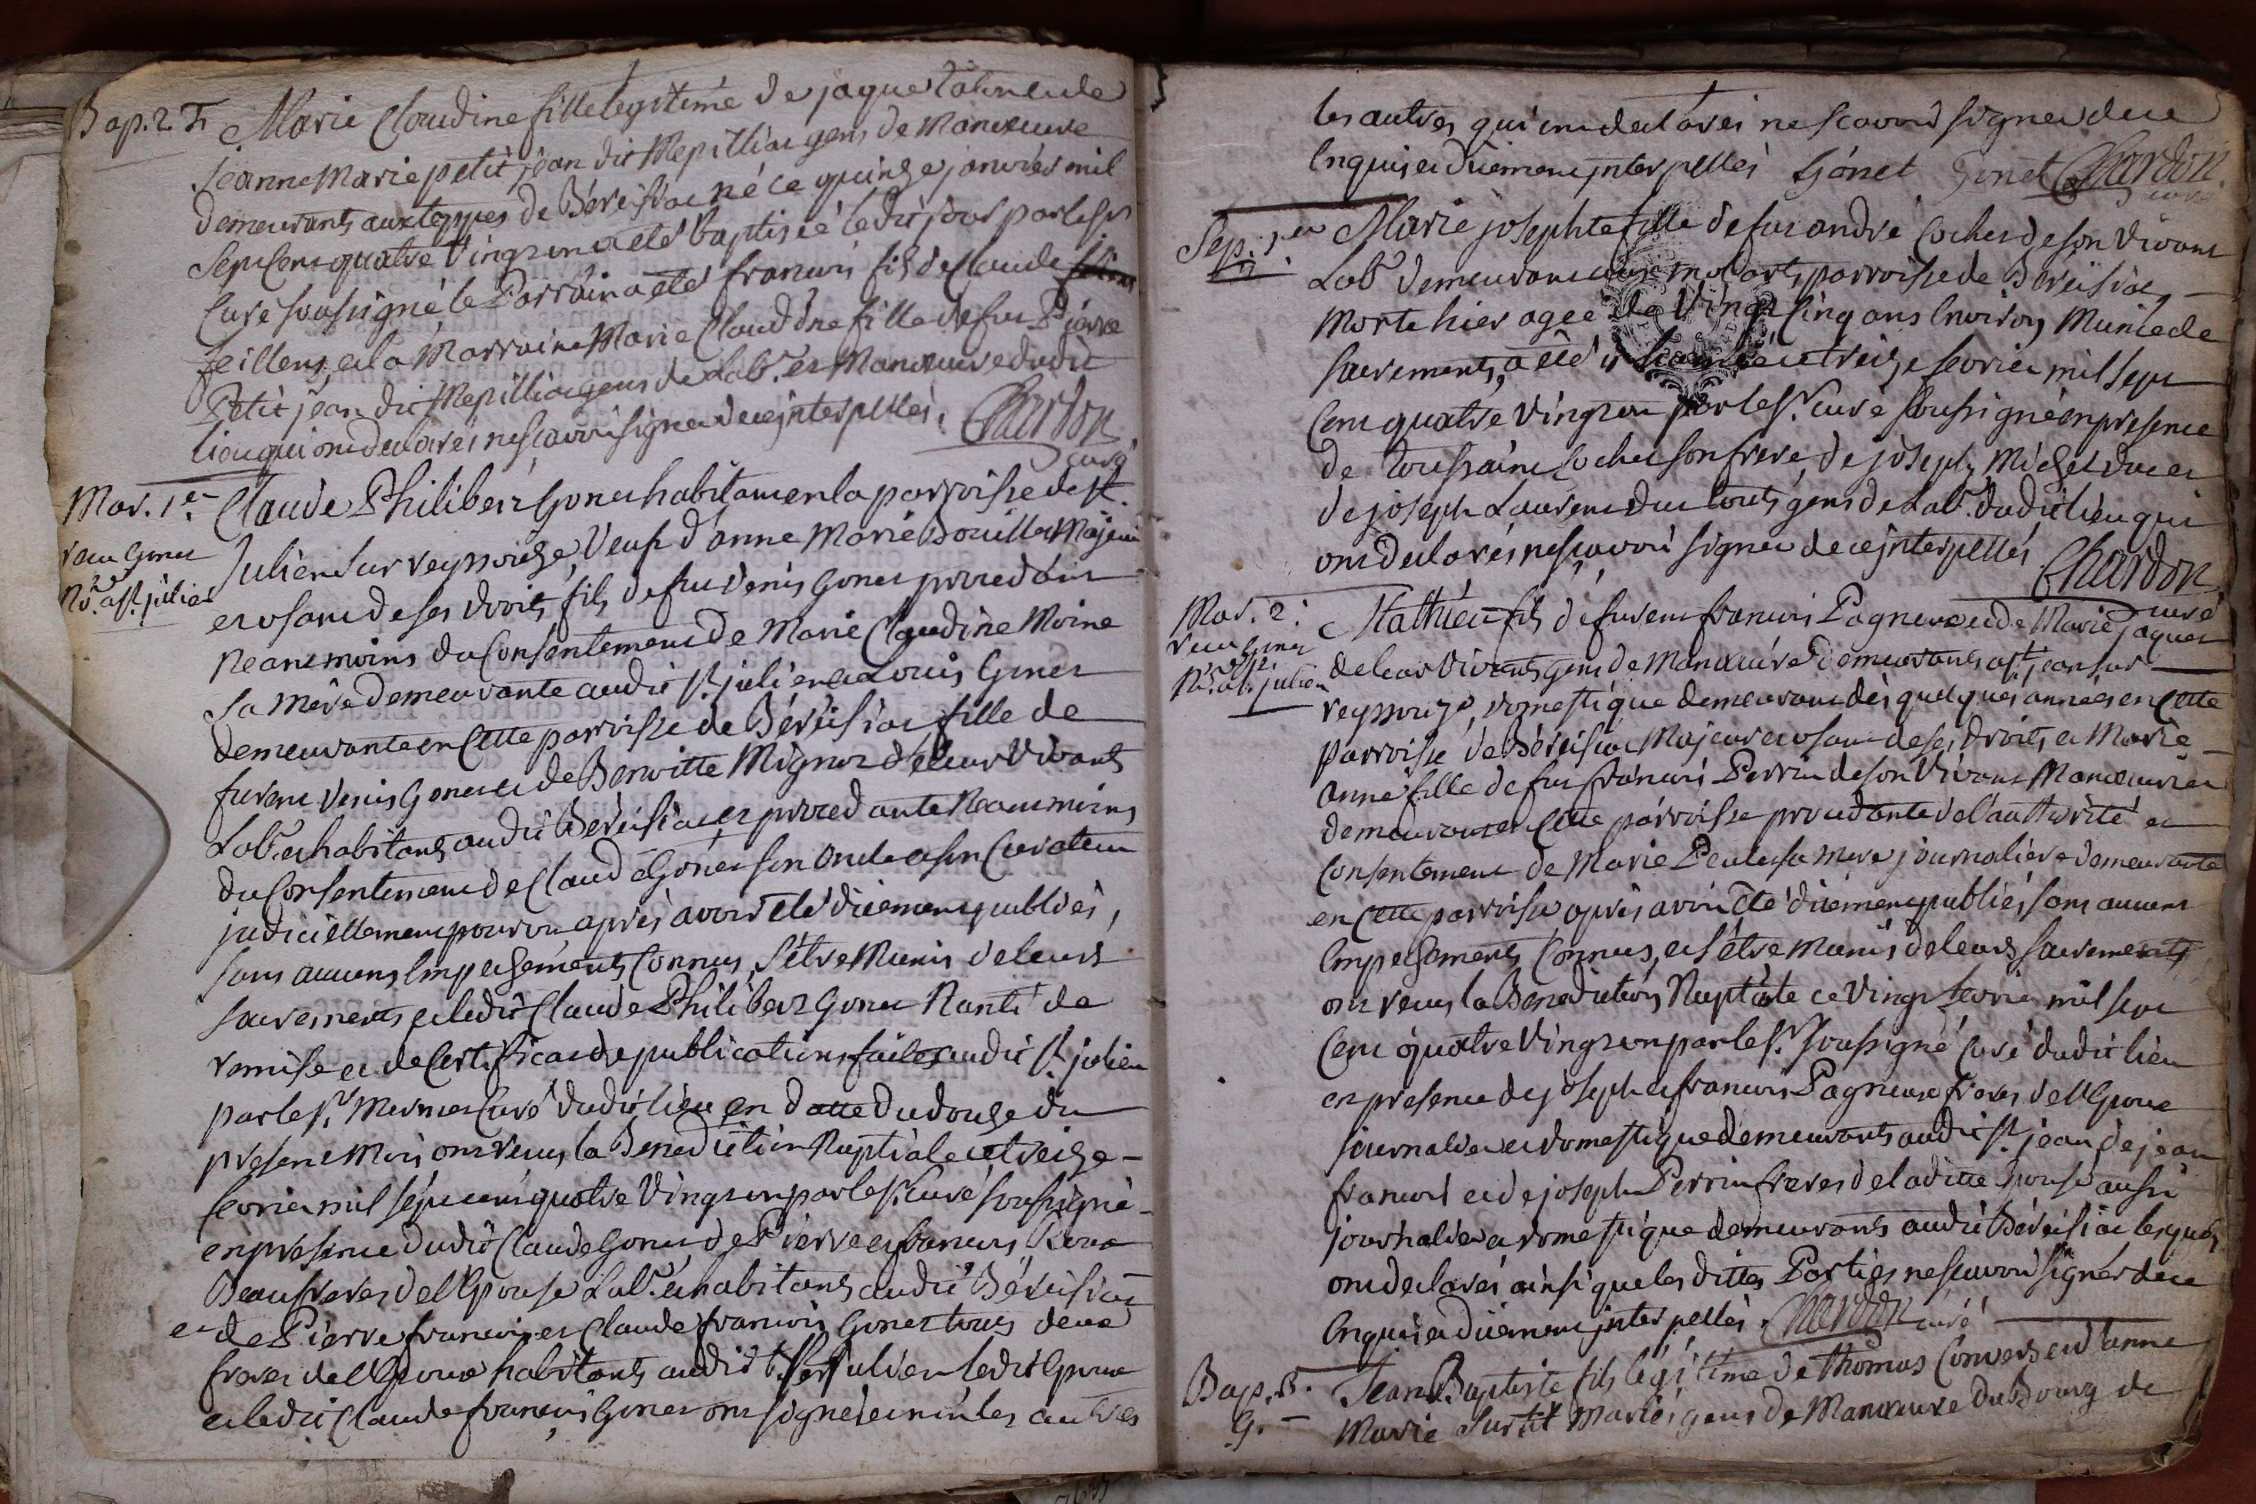 Bap. 2. F.
Marie Claudine fille legitime de jaque
jeanne Marie petit jean dit Mepilliat gens de Manoeuvre
demeurants aux teppes de Béreisiac né ce quinze janvier mil
sept cent quatre vingt un a été baptisée le dit jour par le sr
curé soussigné le Parrain a été francois fils de Claude
feillens et la Marraine Marie Claudine fille de feu Pierre
Petit jean dit Mepilliat gens de Labr. et Manoeuvre dudit
lieu qui ont declarés ne scavoir signer de ce interpellés. Chardon
curé
Mar. 1er
veu Gonet
Nre. a st. julien
Claude Philibert Gonet habitant en la parroisse de st.
julien sur reyssouze, Veuf d'anne Marie Bouillet Majeur
et usant de ses droits fils de feu denis Gonet procedant
neantmoins du Consentement de Marie Claudine Moine
sa mére demeurante audit st. julien et Louis Gonet
demeurante en cette parroisse de Béréisiac fille de
furent denis Gonet et de Benoitte Mignot de leur vivants
Labr. et habitants audit Béréisiac et procedante neantmoins
du Consentement de Claude Gonet son oncle et son Curateur
judiciellement pourvu apres avoir été duement publiés,
sans aucuns Empechements Connus, s'etre Munis de leurs
sacrements et ledit Claude Philibert Gonet Nanti de
remise et de Certificat de publications faites audit st. julien
par le sr. Mermet Curé dudit lieu en datte du douze du
present mois ont recus la Benediction Nuptiale ce treize
fevrier mil sept cent quatre vingt un par le sr. Curé soussigné
en presence dudit Claude Gonet, de Pierre et francois Roux
Beaufreres de l'Epouse Labr. et habitants audit Béréisiac
et de Pierre francois et Claude francois Gonet tous deux
freres de l'Epoux habitants audit st. julien ledit Epoux
et ledit Claude francois Gonet ont signés et non les autres
les autres qui ont declarés ne scavoir signer de ce
Enquis et duement interpellés Gonet Gonet Chardon
curé
Sep. 1er
Marie josephte fille de feu andré Cochet de son vivant
Labr. demeurant aux molards, parroisse de Béréisiac
morte hier agée de vingt cinq ans Environ, Munie de
sacrements, a été inhumée ce treize fevrier mil sept
cent quatre vingt un par le sr. curé soussigné en presence
de toussaint Cochet son frere, de joseph Michel duc et
de joseph Laurent duc touts gens de Labr. dudit lieu qui
ont declarés ne scavoir signer de ce interpellés Chardon
curé
Mar. 2.
veu Gonet
Nre. a st. julien
Mathieu fils de furent francois Pagneux et de Marie jaquet
de leur vivants gens de Manoeuvre demeurants a st. jean sur
reyssouze, domestique demeurant dès quelques années en cette
parroisse de Béréisiac Majeur et usant de ses droits et Marie
anne fille de feu francois Perrin de son vivant Manoeuvrier
demeurant en cette parroisse procedante de l'authorité et
consentement de Marie sa mere journaliere demeurante
en cette parroisse apres avoir été duement publiés sans aucuns
Empechements Connus, et s'etre Munis de leurs sacrements
ont recus la Benediction Nuptiale ce vingt fevrier mil sept
cent quatre vingt un par le sr. soussigné Curé dudit lieu
en presence de joseph et francois Pagneux freres de l'Epoux
journalier et domestique demeurants audit st. jean de jean
francois et de joseph Perrin freres de la ditte Epouse aussi
journalier et domestique demeurants audit Béréisiac lesquels
ont declarés ainsi que les dittes Parties ne scavoir signer de ce
Enquis et duement interpellés. Chardon curé
Bap. 3.
G.
Jean Baptiste fils légitime de thomas Convers et d'anne
Marie Surtit Mariés gens de Manoeuvre du Bourg de